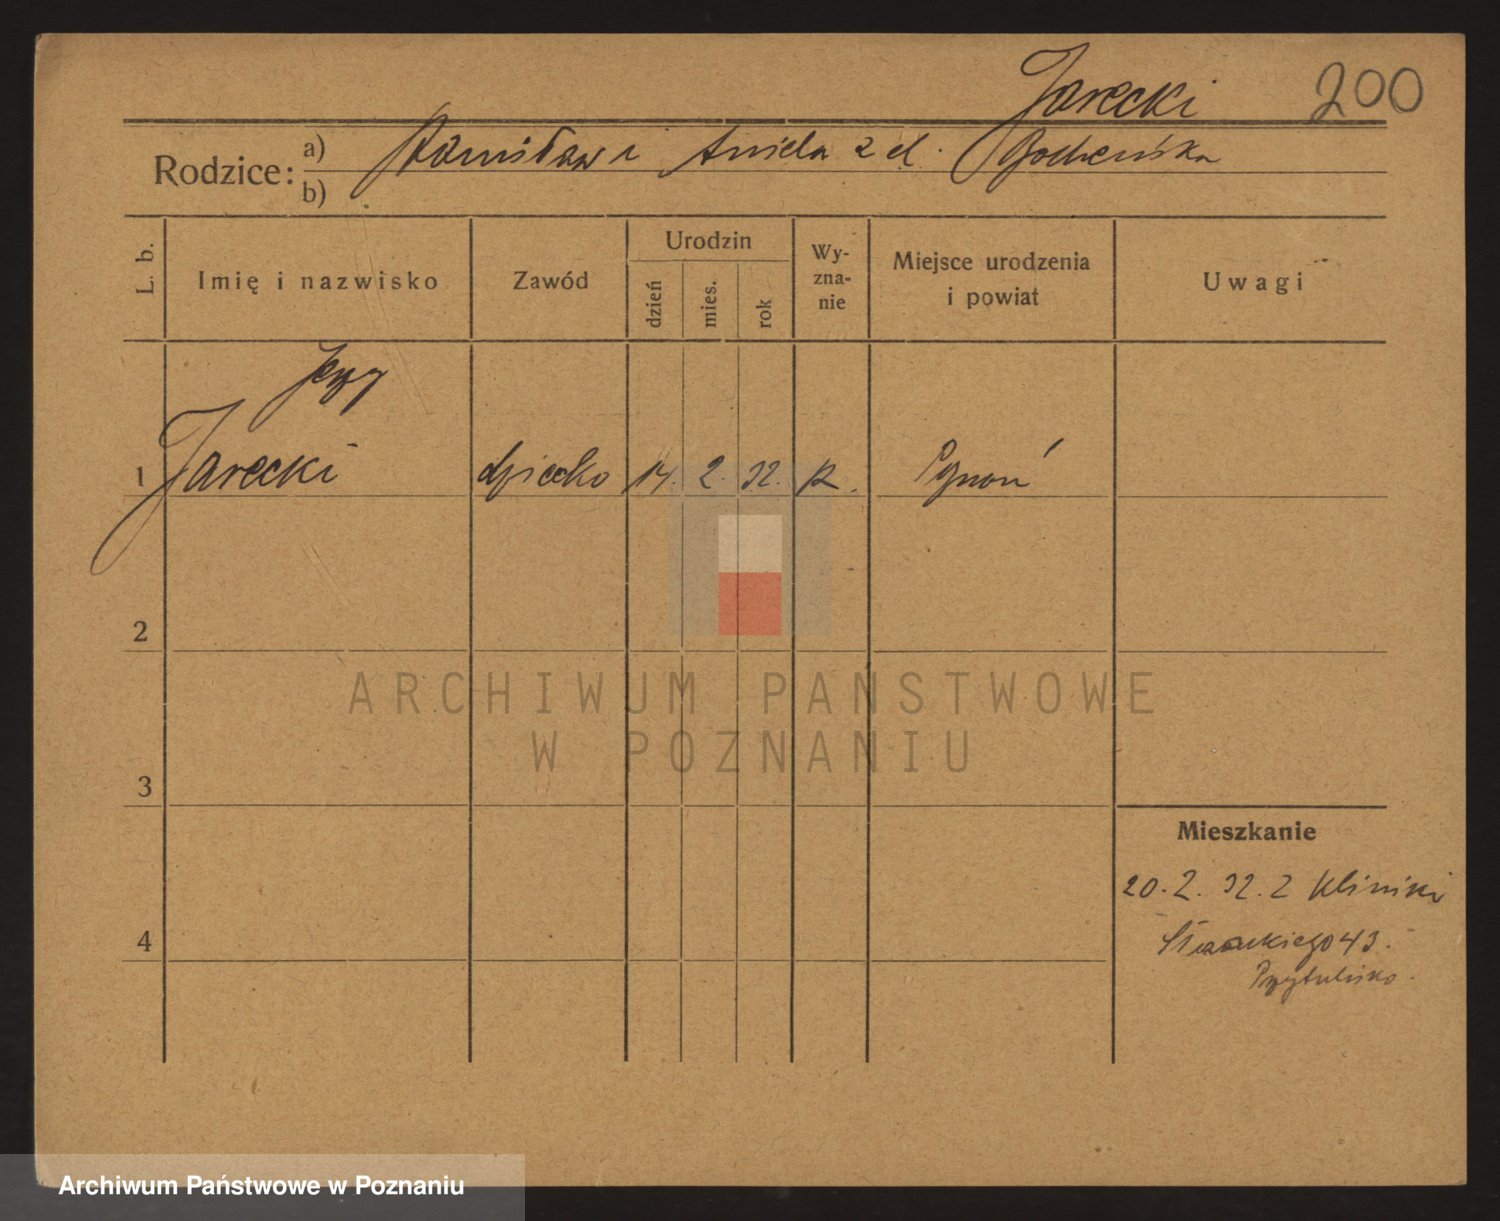 Jarecki 200
Rodzice: a) Stanisław i Aniela z d. Bocheńska
b)
L. b. Imię i nazwisko Zawód Urodzin dzień mies. rok Wy-zna-nie Miejsce urodzenia i powiat Uwagi
Jerzy
1 Jarecki dziecko 14. 2. 32. R. Poznań
2
ARCHIWUM PAŃSTWOWE
W POZNANIU
3
Mieszkanie
20. 2. 32. z Kliniki
4
43.
Przytulisko.
Archiwum Państwowe w Poznaniu